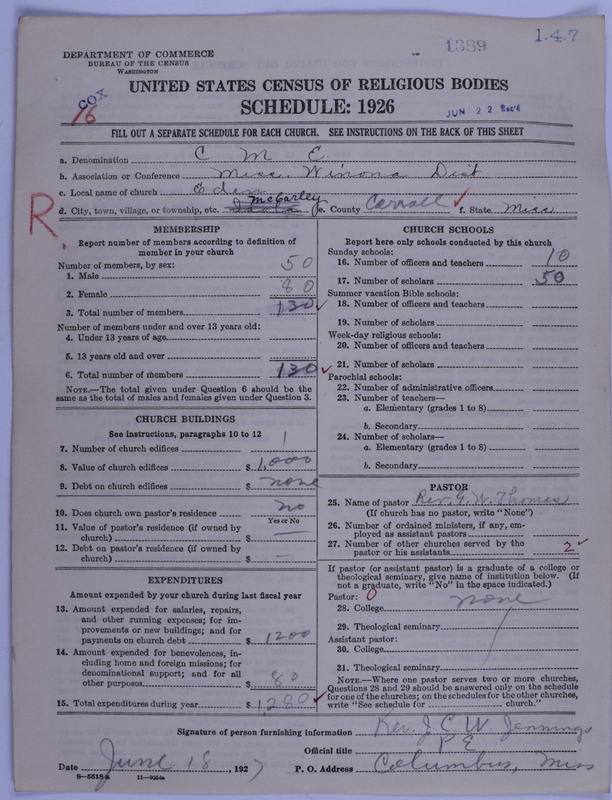 1389
1-4-7
DEPARTMENT OF COMMERCE
BUREAU OF THE CENSUS
WASHINGTON
COX
16
UNITED STATES CENSUS OF RELIGIOUS BODIES
SCHEDULE: 1926
JUN 22 Rec'd
FILL OUT A SEPARATE SCHEDULE FOR EACH CHURCH. SEE INSTRUCTIONS ON THE BACK OF THIS SHEET
a. Denomination C M E
b. Association or Conference Miss. Winona Dist
c. Local name of church Eden
d. City, town, village, or township, etc. McCarley e. County Carroll f. State Miss
R.
MEMBERSHIP
Report number of members according to definition of member in your church
Number of members, by sex:
1. Male 50
2. Female 80
3. Total number of members 130
Number of members under and over 13 years old:
4. Under 13 years of age
5. 13 years old and over
6. Total number of members 130
NOTE.—The total given under Question 6 should be the same as the total of males and females given under Question 3.
CHURCH BUILDINGS
See instructions, paragraphs 10 to 12
7. Number of church edifices 1
8. Value of church edifices $ 1,000
9. Debt on church edifices $ none
10. Does church own pastor's residence no
Yes or No
11. Value of pastor's residence (if owned by church) $ —
12. Debt on pastor's residence (if owned by church) $ —
EXPENDITURES
Amount expended by your church during last fiscal year
13. Amount expended for salaries, repairs, and other running expenses; for improvements or new buildings; and for payments on church debt $ 1200
14. Amount expended for benevolences, including home and foreign missions; for denominational support; and for all other purposes $ 80
15. Total expenditures during year $ 1,280
CHURCH SCHOOLS
Report here only schools conducted by this church
Sunday schools:
16. Number of officers and teachers 10
17. Number of scholars 50
Summer vacation Bible schools:
18. Number of officers and teachers
19. Number of scholars
Week-day religious schools:
20. Number of officers and teachers
21. Number of scholars
Parochial schools:
22. Number of administrative officers
23. Number of teachers—
a. Elementary (grades 1 to 8)
b. Secondary
24. Number of scholars—
a. Elementary (grades 1 to 8)
b. Secondary
PASTOR
25. Name of pastor Rev. G. W. Thomas
(If church has no pastor, write "None")
26. Number of ordained ministers, if any, employed as assistant pastors
27. Number of other churches served by the pastor or his assistants 2
If pastor (or assistant pastor) is a graduate of a college or theological seminary, give name of institution below. (If not a graduate, write "No" in the space indicated.)
Pastor: 0
28. College none
29. Theological seminary
Assistant pastor:
30. College
31. Theological seminary
NOTE.—Where one pastor serves two or more churches, Questions 28 and 29 should be answered only on the schedule for one of the churches; on the schedules for the other churches, write "See schedule for church."
Signature of person furnishing information Rev. J. C. W. Jennings
Official title P E
Date June 18, 1927 P. O. Address Columbus, Miss
8-5518a 11-9064a